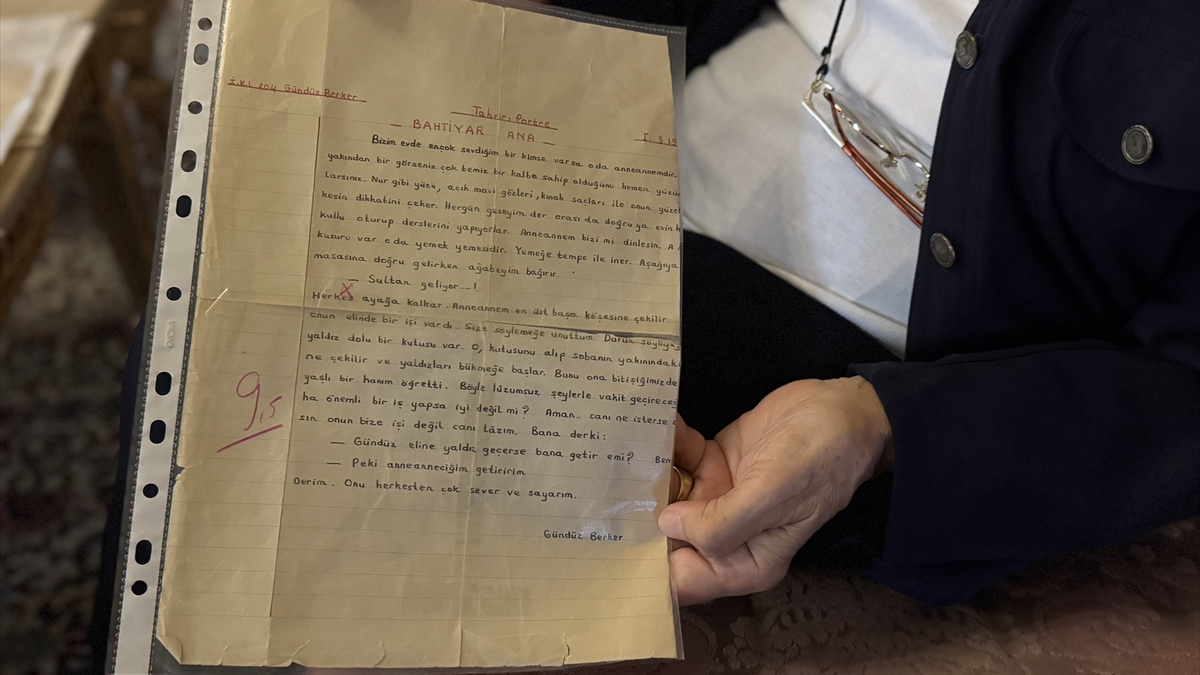 İ.K.L 204 Gündüz Berker
Tahrir: Portre
I_3.19
— BAHTİYAR ANA —
Bizim evde ençok sevdiğim bir kimse varsa oda anneannemdir.
yakından bir görseniz çok temiz bir kalbe sahip olduğunu hemen yüzün
larsınız. Nur gibi yüzü, açık mavi gözleri, kınalı saçları ile onun güzel
kesin dikkatini çeker. Hergün gezeyim der orası da doğru ya evin h
kullu oturup derslerini yapıyorlar. Anneannem bizi mi dinlesin. A
kusuru var o da yemek yemesidir. Yemeğe tempo ile iner. Aşağıya
masasına doğru gelirken ağabeyim bağırır.
— Sultan geliyor__!
Herkes ayağa kalkar. Anneannem en üst başa köşesine çekilir.
onun elinde bir işi vardı. Size söylemeğe unuttum. Durun söyliye
yaldız dolu bir kutusu var. O, kutusunu alıp sobanın yakınındaki
ne çekilir ve yaldızları bükmeğe başlar. Bunu ona bitişiğimizde
yaşlı bir hanım öğretti. Böyle lüzumsuz şeylerle vakit geçirece
ha önemli bir iş yapsa iyi değil mi? Aman.. canı ne isterse o
sın onun bize işi değil canı lâzım. Bana derki:
— Gündüz eline yaldız geçerse bana getir emi? Ben
— Peki anneanneciğim getiririm
Derim. Onu herkesten çok sever ve sayarım.
9,5
Gündüz Berker